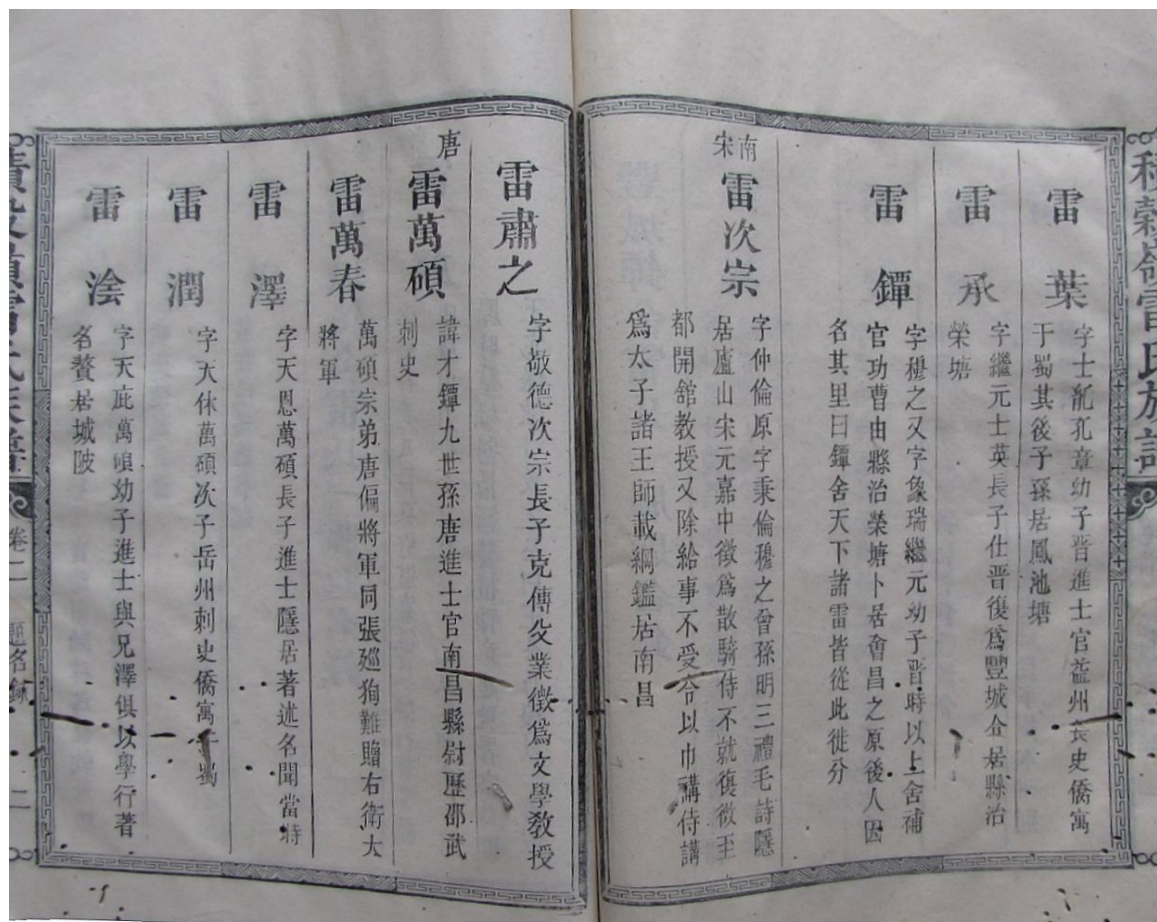 雷葉
字士龍孔章幼子晉進士官益州長史僑寓
于蜀其後子孫居鳳池塘
雷承
字繼元士英長子仕晉復爲豐城令居縣治
榮塘
雷鐔
字穆之又字象瑞繼元幼子晉時以上舍補
官功曹由縣治榮塘卜居會昌之原後人因
名其里曰鐔舍天下諸雷皆從此徙分
南宋
雷次宗
字仲倫原字秉倫穆之曾孫明三禮毛詩隱
居廬山宋元嘉中徵爲散騎侍不就復徵至
都開舘教授又除給事不受令以巾講侍講
爲太子諸王師載綱鑑居南昌
雷肅之
字敬德次宗長子克傳父業徵爲文學教授
唐
雷萬碩
諱才鐔九世孫唐進士官南昌縣尉歷邵武
刺史
雷萬春
萬碩宗弟唐偏將軍同張巡狥難贈右衛大
將軍
雷澤
字天恩萬碩長子進士隱居著述名聞當時
雷潤
字天休萬碩次子岳州刺史僑寓蜀
雷淦
字天庇萬碩幼子進士與兄澤俱以學行著
名贅居城陂
卷二
題名錄
二